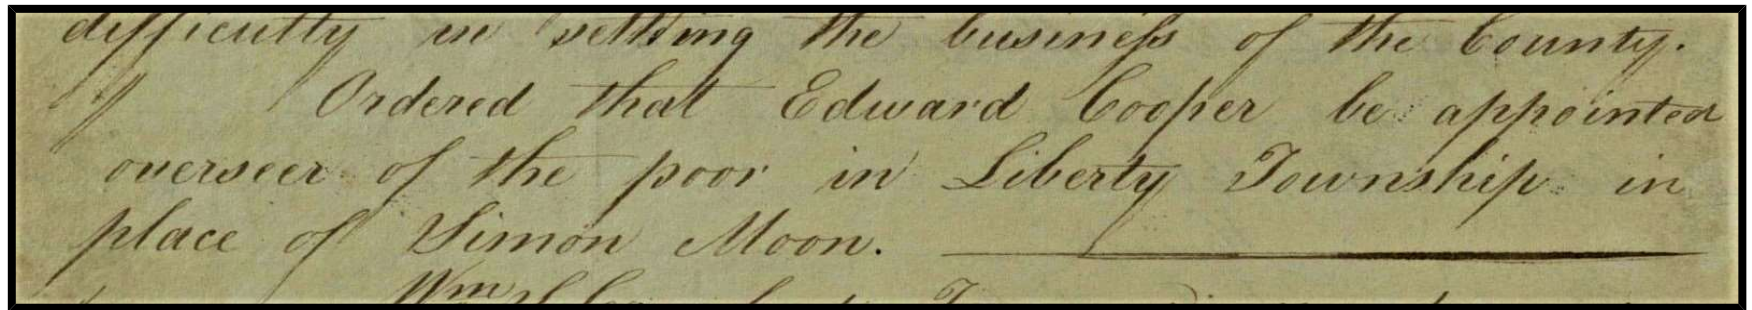 difficulty in settling the business of the County.
Ordered that Edward Cooper be appointed
overseer of the poor in Liberty Township in
place of Simon Moon.
Wm